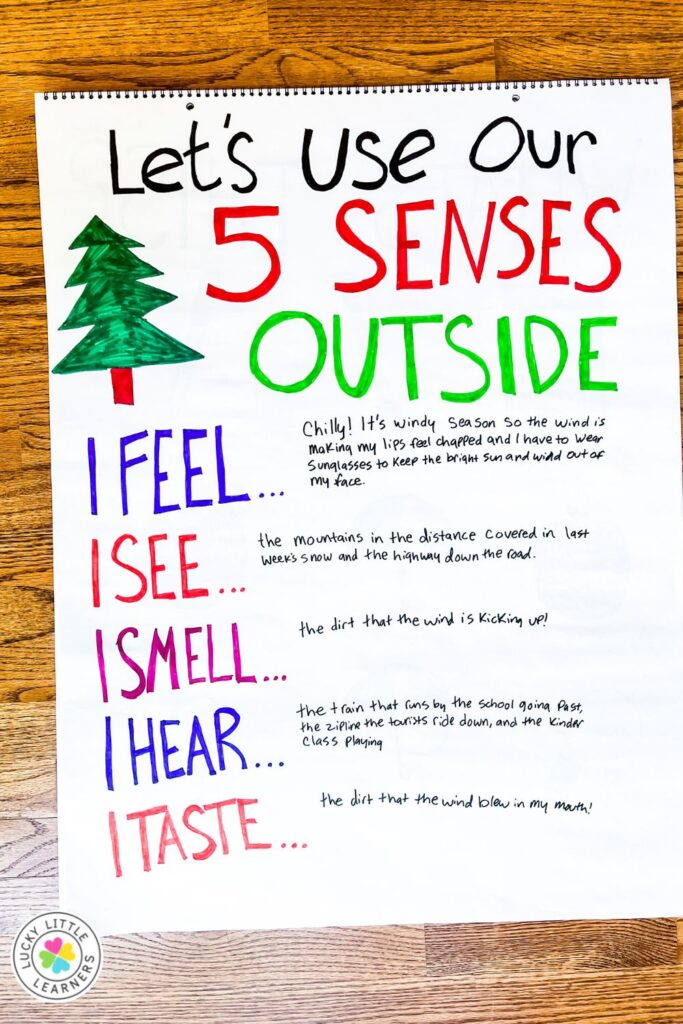 Let's Use Our
5 SENSES
OUTSIDE
I FEEL...
Chilly! It's windy season so the wind is
making my lips feel chapped and I have to wear
sunglasses to keep the bright sun and wind out of
my face.
I SEE...
the mountains in the distance covered in last
week's snow and the highway down the road.
I SMELL...
the dirt that the wind is kicking up!
I HEAR...
the train that runs by the school going past,
the zipline the tourists ride down, and the kinder
class playing
I TASTE...
the dirt that the wind blew in my mouth!
LUCKY LITTLE
LEARNERS